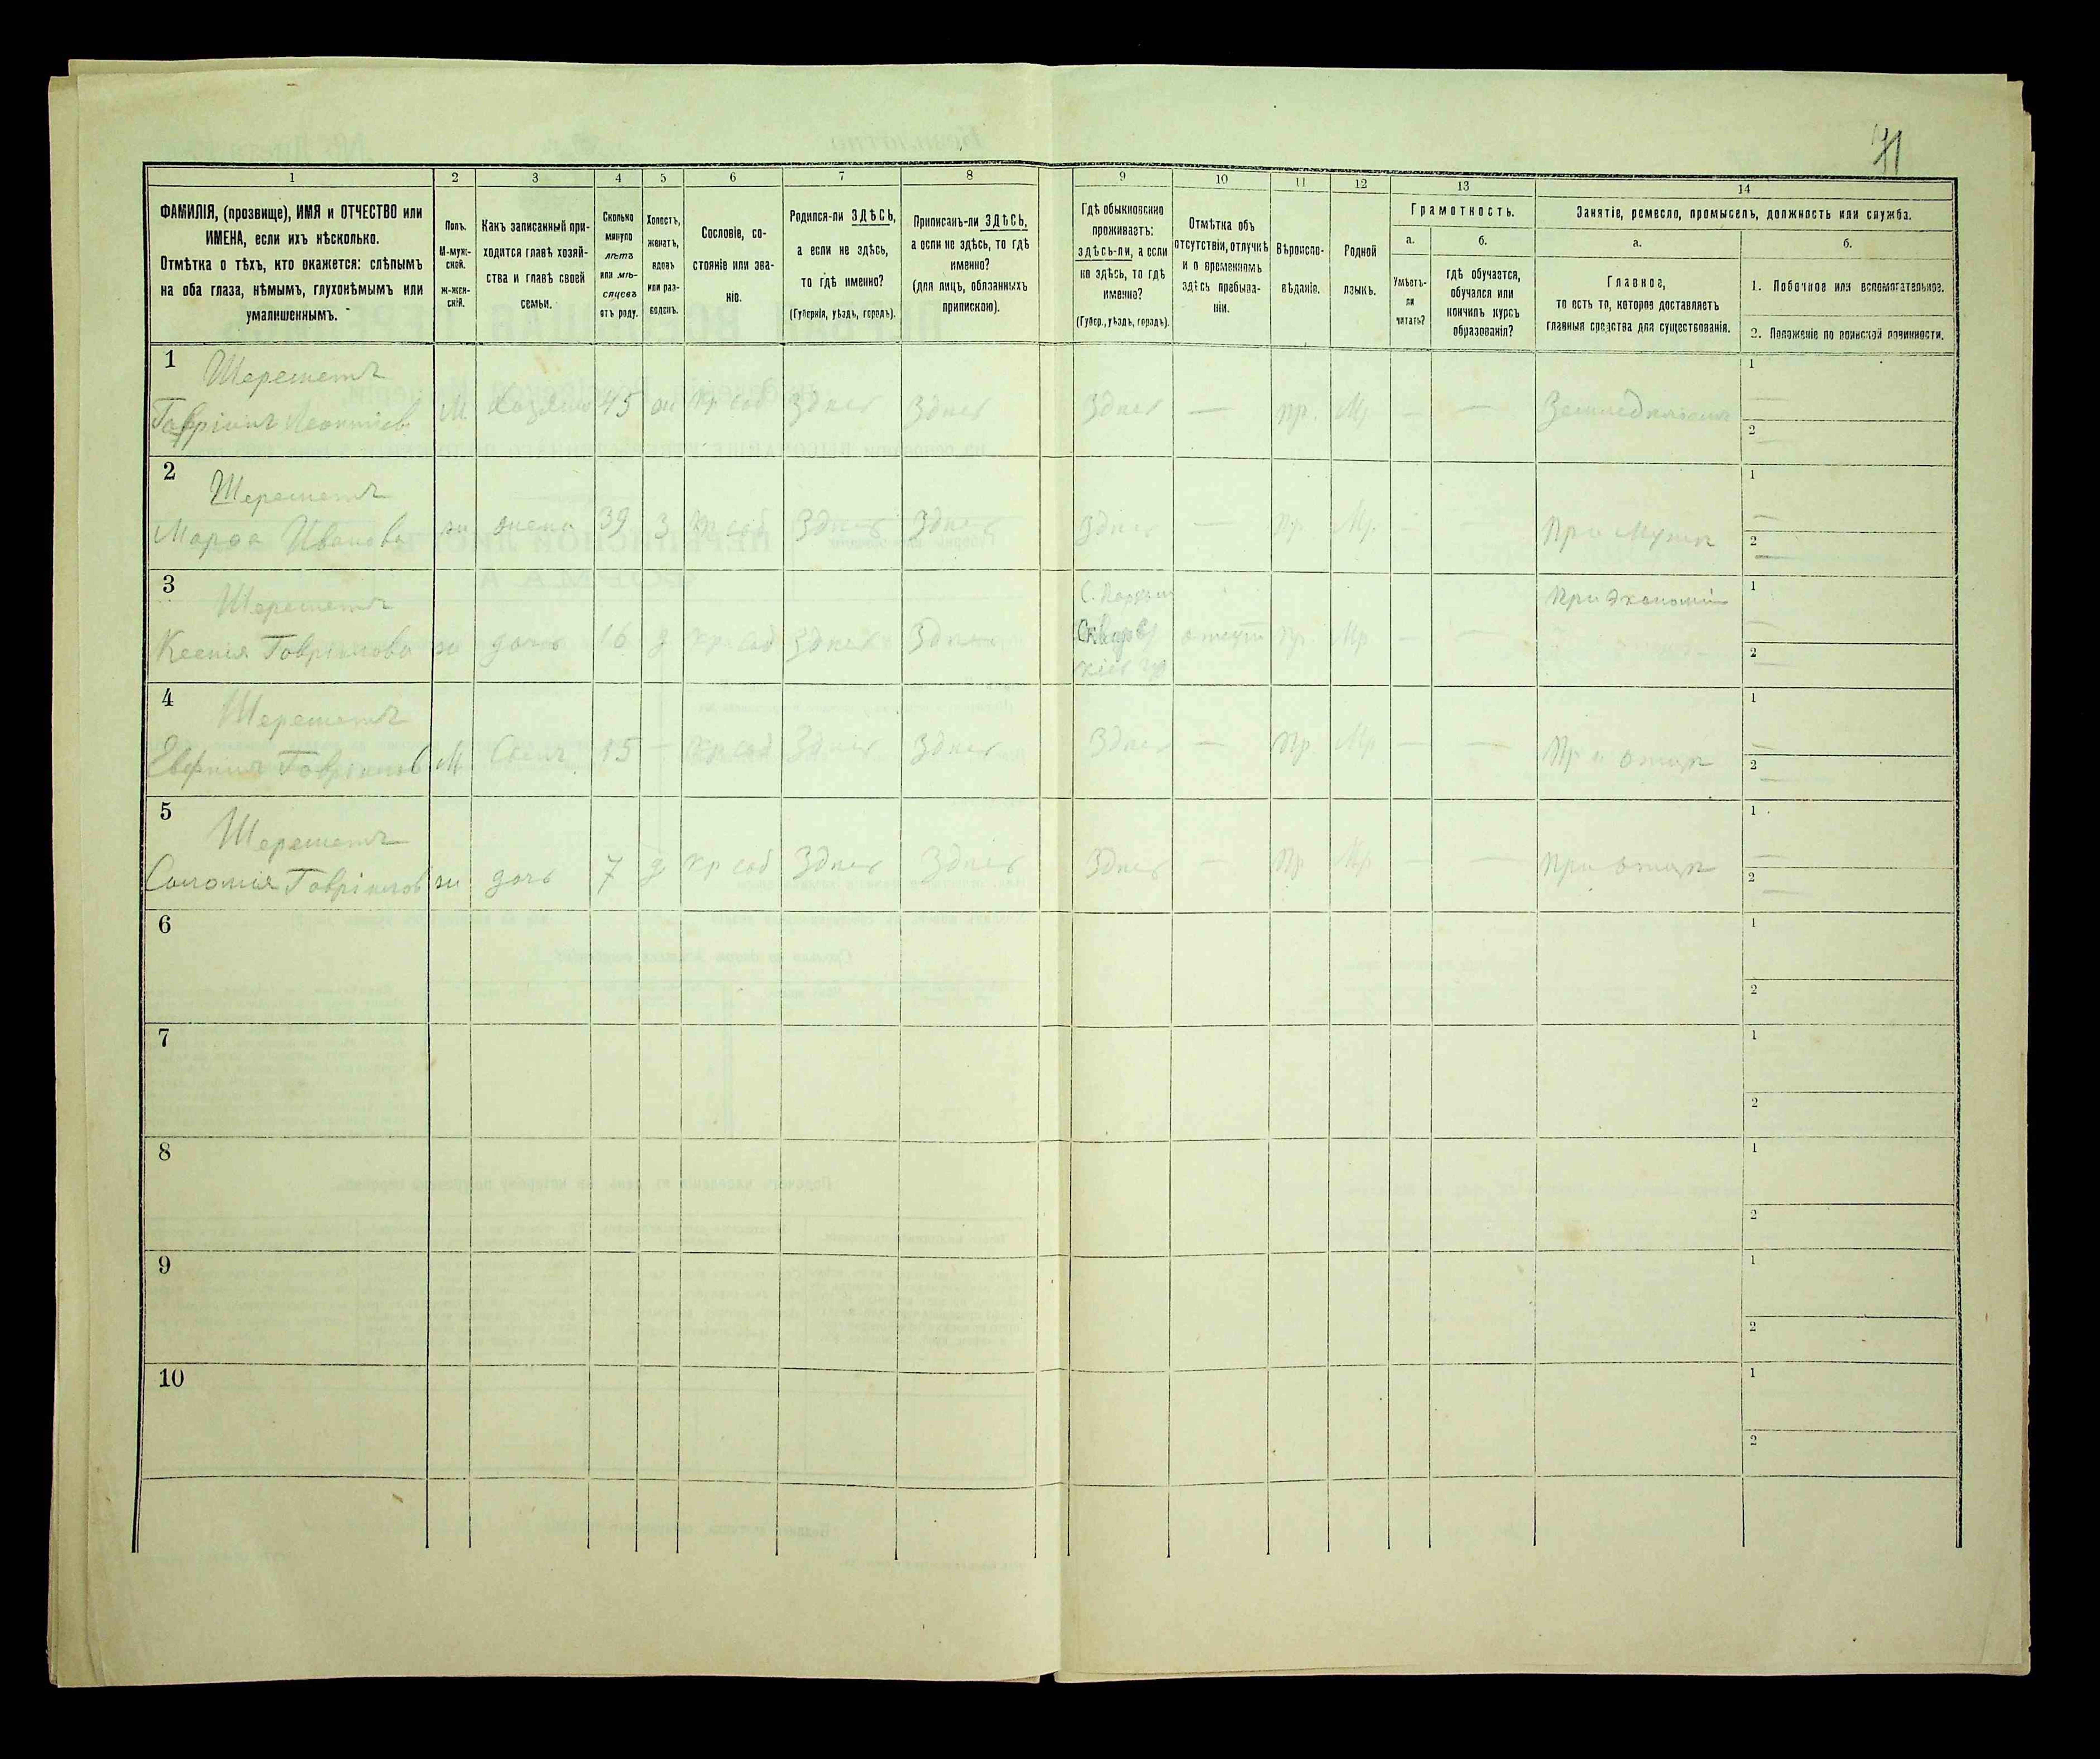 71
1 2 3 4 5 6 7 8 9 10 11 12 13 14
ФАМИЛІЯ, (прозвище), ИМЯ и ОТЧЕСТВО или
ИМЕНА, если ихъ нѣсколько.
Отмѣтка о тѣхъ, кто окажется: слѣпымъ
на оба глаза, нѣмымъ, глухонѣмымъ или
умалишеннымъ.
Полъ.
М-муж-
ской.
Ж-жен-
скій.
Какъ записанный при-
ходится главѣ хозяй-
ства и главѣ своей
семьи.
Сколько
минуло
лѣтъ
или мѣ-
сяцевъ
отъ роду.
Холостъ,
женатъ,
вдовъ
или раз-
веденъ.
Сословіе, со-
стояніе или зва-
ніе.
Родился-ли ЗДѢСЬ,
а если не здѣсь,
то гдѣ именно?
(Губернія, уѣздъ, городъ).
Приписанъ-ли ЗДѢСЬ,
а если не здѣсь, то гдѣ
именно?
(для лицъ, обязанныхъ
припискою).
Гдѣ обыкновенно
проживаетъ:
здѣсь-ли, а если
не здѣсь, то гдѣ
именно?
(Губер., уѣздъ, городъ).
Отмѣтка объ
отсутствіи, отлучкѣ
и о временномъ
здѣсь пребыва-
ніи.
Вѣроиспо-
вѣданіе.
Родной
языкъ.
Грамотность.
а.
Умѣетъ-
ли
читать?
б.
гдѣ обучается,
обучался или
кончилъ курсъ
образованія?
Занятіе, ремесло, промыселъ, должность или служба.
а.
Главное,
то есть то, которое доставляетъ
главныя средства для существованія.
б.
1. Побочное или вспомогательное.
2. Положеніе по воинской повинности.
1 Шереметъ 1
Гавріилъ Леонтіев. М. Хозяинъ 45 ж Кр соб Здѣсь Здѣсь Здѣсь — Пр. Мр — — Земледѣлецъ —
2
—
2 Шереметъ 1
Марфа Иванова ж жена 39 З Кр соб Здѣсь Здѣсь Здѣсь — Пр Мр. - При Мужѣ —
2
—
3 Шереметъ С. При Экономіи 1
Ксенія Гавріилова ж дочь 16 д Кр соб Здѣсь Здѣсь Сквир отсут Пр. Мр — — —
Кіев гу 2
—
4 Шереметъ 1
Гавріилов М. Сынъ 15 — Кр соб Здѣсь Здѣсь Здѣсь — Пр Мр — — Пр и отцѣ —
2
—
5 Шереметъ 1
Соломія Гавріилов ж дочь 7 д Кр соб Здѣсь Здѣсь Здѣсь — Пр Мр — — При отцѣ —
2
—
6 1
2
7 1
2
8 1
2
9 1
2
10 1
2